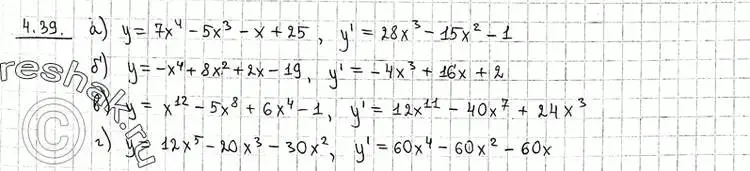 4.39. а) y = 7x⁴ − 5x³ − x + 25, y' = 28x³ − 15x² − 1
б) y = −x⁴ + 8x² + 2x − 19, y' = −4x³ + 16x + 2
в) y = x¹² − 5x⁸ + 6x⁴ − 1, y' = 12x¹¹ − 40x⁷ + 24x³
г) y = 12x⁵ − 20x³ − 30x², y' = 60x⁴ − 60x² − 60x
©reshak.ru